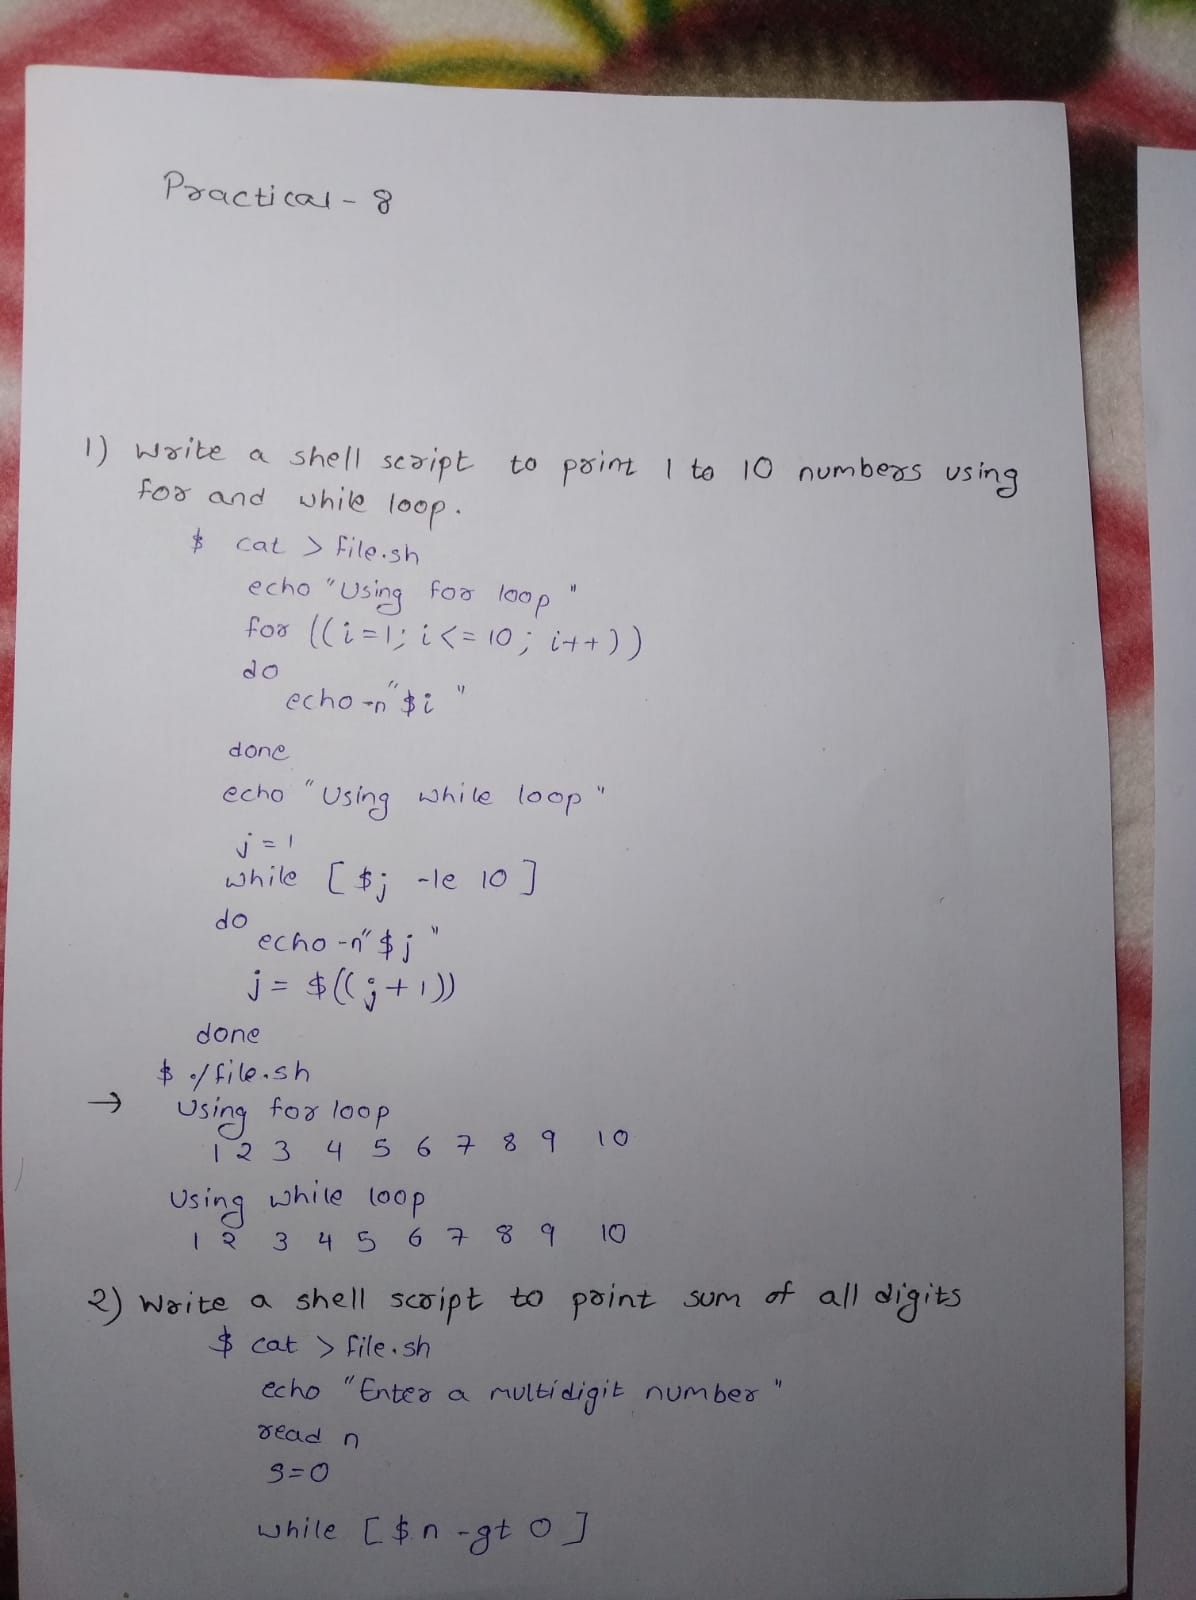 Practical - 8
1) Write a shell script to print 1 to 10 numbers using
for and while loop.
$ cat > file.sh
echo "Using for loop"
for ((i=1; i<=10; i++))
do
echo -n "$i "
done
echo "Using while loop"
j=1
while [ $j -le 10 ]
do
echo -n "$j "
j= $((j+1))
done
$ ./file.sh
→ Using for loop
1 2 3 4 5 6 7 8 9 10
Using while loop
1 2 3 4 5 6 7 8 9 10
2) Write a shell script to print sum of all digits
$ cat > file.sh
echo "Enter a multidigit number"
read n
s=0
while [ $n -gt 0 ]